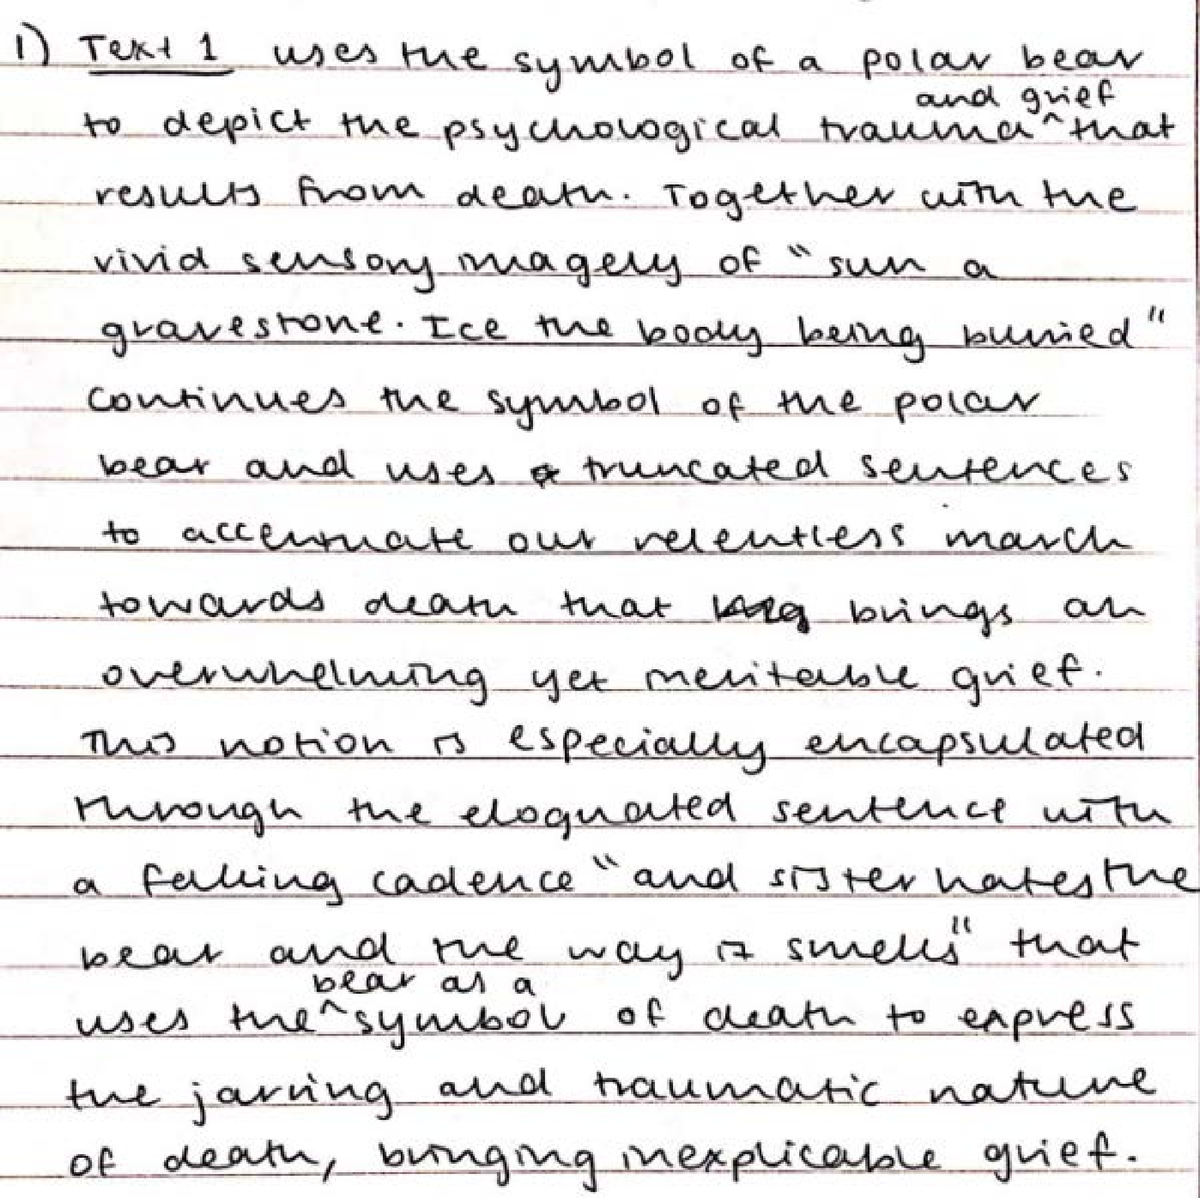 1) Text 1 uses the symbol of a polar bear
and grief
to depict the psychological trauma ^ that
results from death. Together with the
vivid sensory imagery of "sun a
gravestone. Ice the body being buried"
continues the symbol of the polar
bear and uses truncated sentences
to accentuate our relentless march
towards death that brings an
overwhelming yet inevitable grief.
This notion is especially encapsulated
through the eloguated sentence with
a falling cadence "and sister hates the
bear and the way it smells" that
bear as a
uses the ^ symbol of death to express
the jarring and traumatic nature
of death, bringing inexplicable grief.